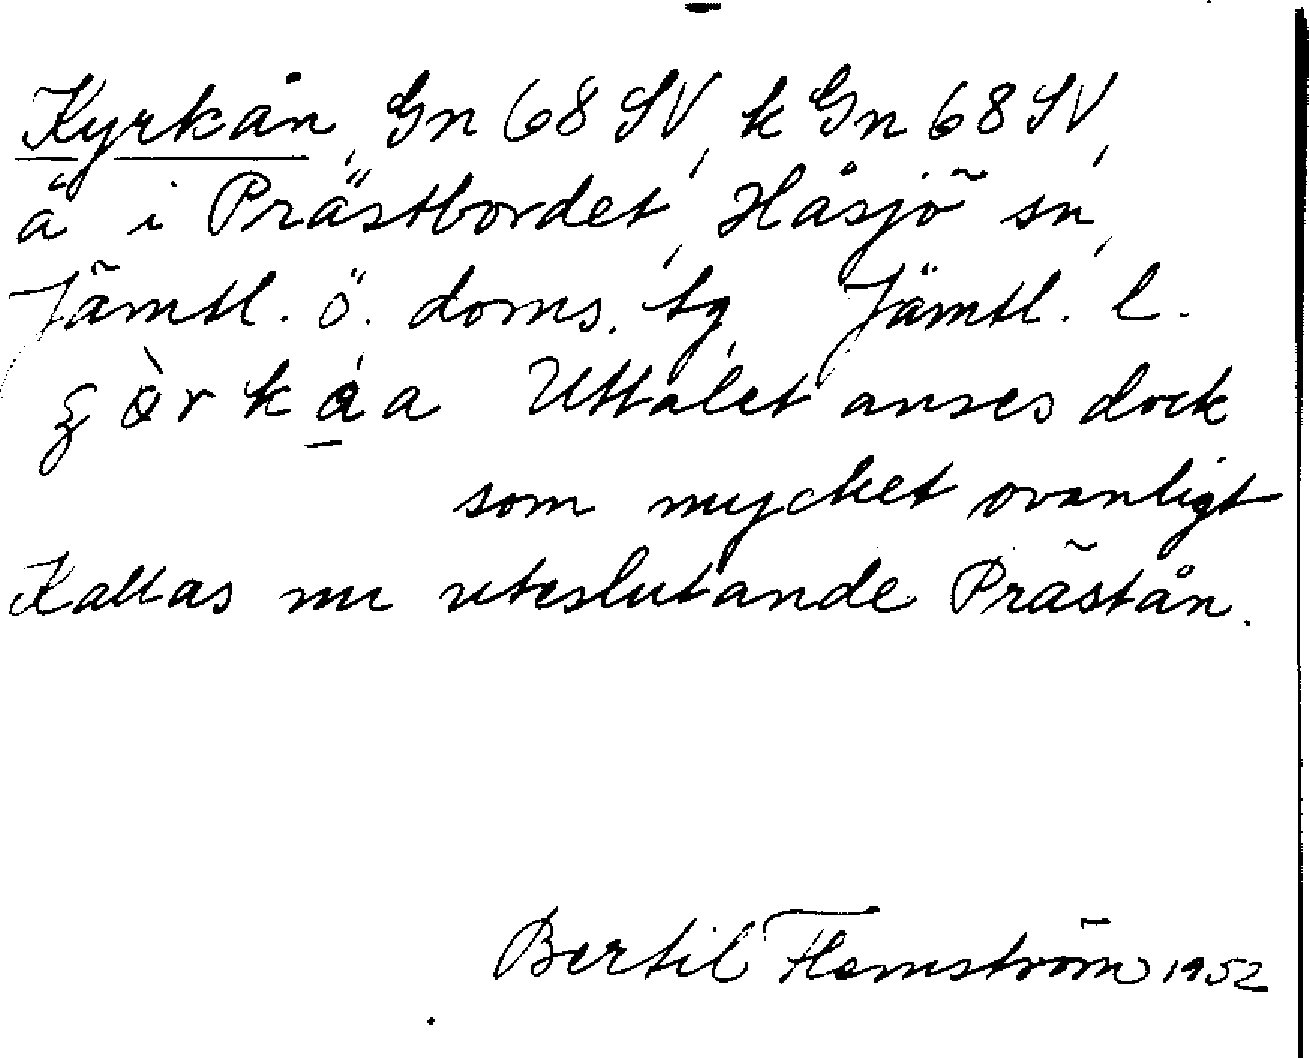 Kyrkån, Gn 68 SV, k Gn 68 SV,
å i Prästbordet, Håsjö sn,
Jämtl. ö. doms. tg, Jämtl. l.
Uttalet anses dock
som mycket ovanligt
Kallas nu uteslutande Prästån.
Bertil Flemström 1952